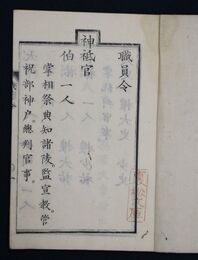 職員令
神祇官
伯一人
掌相祭典知諸陵監宣教管
祝部神戸總判官事